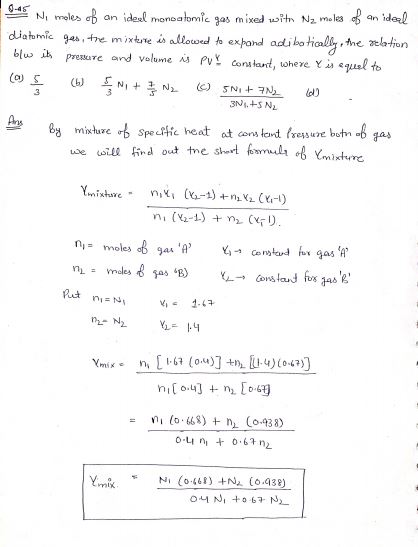 Q-45 N₁ moles of an ideal monoatomic gas mixed with N₂ moles of an ideal
diatomic gas, the mixture is allowed to expand adibatically, the relation
b/w its pressure and volume is PV^γ constant, where γ is equel to
(a) 5/3 (b) 5/3 N₁ + 7/5 N₂ (c) (5N₁ + 7N₂)/(3N₁ + 5N₂) (d)
Ans By mixture of specific heat at constend pressure both of gas
we will find out the short formula of γmixture
γmixture = (n₁γ₁ (γ₂-1) + n₂γ₂ (γ₁-1)) / (n₁ (γ₂-1) + n₂ (γ₁-1)).
n₁ = moles of gas 'A' γ₁ → constant for gas 'A'
n₂ = moles of gas 'B) γ₂ → constant for gas 'B'
Put n₁ = N₁ γ₁ = 1.67
n₂ = N₂ γ₂ = 1.4
γmix = (n₁ [1.67 (0.4)] + n₂ [(1.4) (0.67)]) / (n₁[0.4] + n₂ [0.67])
= (n₁ (0.668) + n₂ (0.938)) / (0.4 n₁ + 0.67 n₂)
γmix. = (N₁ (0.668) + N₂ (0.938)) / (0.4 N₁ + 0.67 N₂)